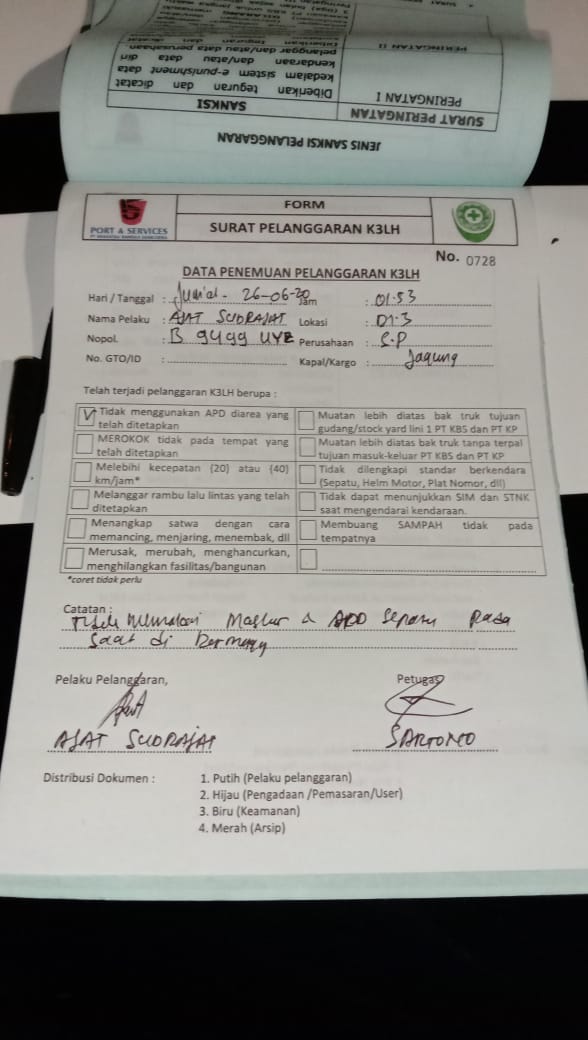 PERINGATAN II
pelanggar dan/atau data perusahaan
kendaraan dan/atau data diri
kedalam sistem e-punishment data
PERINGATAN I
Diberikan teguran dan dicatat
SURAT PERINGATAN
SANKSI
JENIS SANKSI PELANGGARAN
PORT & SERVICES
FORM
SURAT PELANGGARAN K3LH
No. 0728
DATA PENEMUAN PELANGGARAN K3LH
Hari / Tanggal : Jum'at - 26-06-20 Jam : 01.53
Nama Pelaku : AJAT SUDRAJAT Lokasi : 01.3
Nopol. : B 9499 UYZ Perusahaan : S.P
No. GTO/ID : Kapal/Kargo : Jagung
Telah terjadi pelanggaran K3LH berupa :
Tidak menggunakan APD diarea yang
telah ditetapkan
Muatan lebih diatas bak truk tujuan
gudang/stock yard lini 1 PT KBS dan PT KP
MEROKOK tidak pada tempat yang
telah ditetapkan
Muatan lebih diatas bak truk tanpa terpal
tujuan masuk-keluar PT KBS dan PT KP
Melebihi kecepatan (20) atau (40)
km/jam*
Tidak dilengkapi standar berkendara
(Sepatu, Helm Motor, Plat Nomor, dll)
Melanggar rambu lalu lintas yang telah
ditetapkan
Tidak dapat menunjukkan SIM dan STNK
saat mengendarai kendaraan.
Menangkap satwa dengan cara
memancing, menjaring, menembak, dll
Membuang SAMPAH tidak pada
tempatnya
Merusak, merubah, menghancurkan,
menghilangkan fasilitas/bangunan
*coret tidak perlu
Catatan :
Tidak memakai Masker & APD Sepatu pada
saat di Dermaga
Pelaku Pelanggaran, Petugas
AJAT SUDRAJAT SARTONO
Distribusi Dokumen : 1. Putih (Pelaku pelanggaran)
2. Hijau (Pengadaan /Pemasaran/User)
3. Biru (Keamanan)
4. Merah (Arsip)